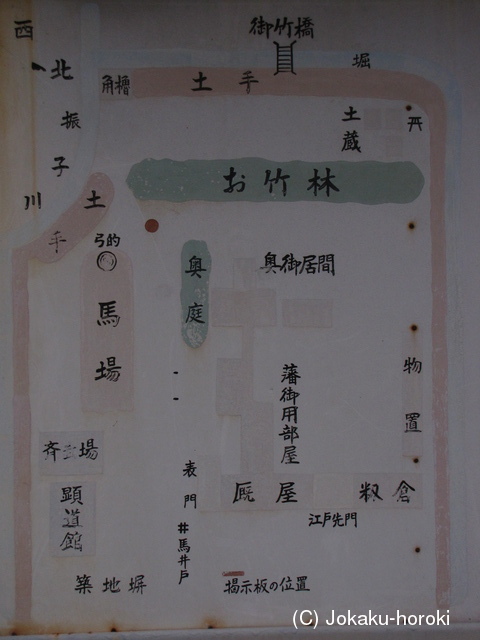 西
北
振子川
角櫓
土手
御竹橋
堀
土蔵
お竹林
土手
弓的
馬場
奥庭
奥御居間
藩御用部屋
物置
斉 場
顕道館
表門
井馬井戸
厩屋
籾倉
江戸先門
築地塀
掲示板の位置
(C) Jokaku-horoki